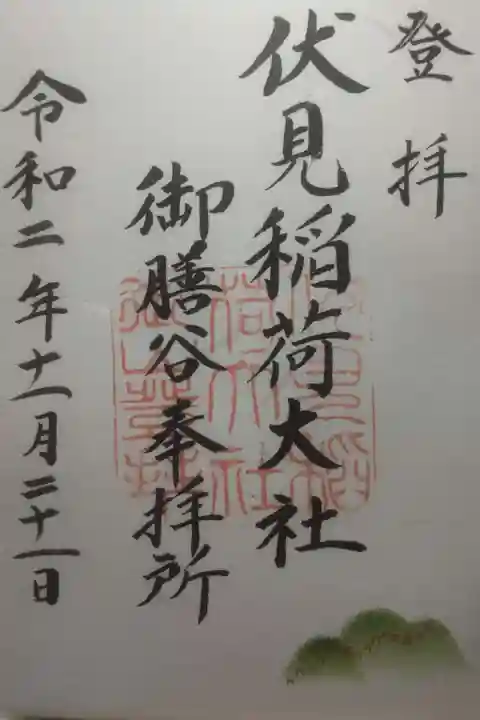 登拝
伏見稲荷大社
御膳谷奉拝所
令和二年十一月二十一日